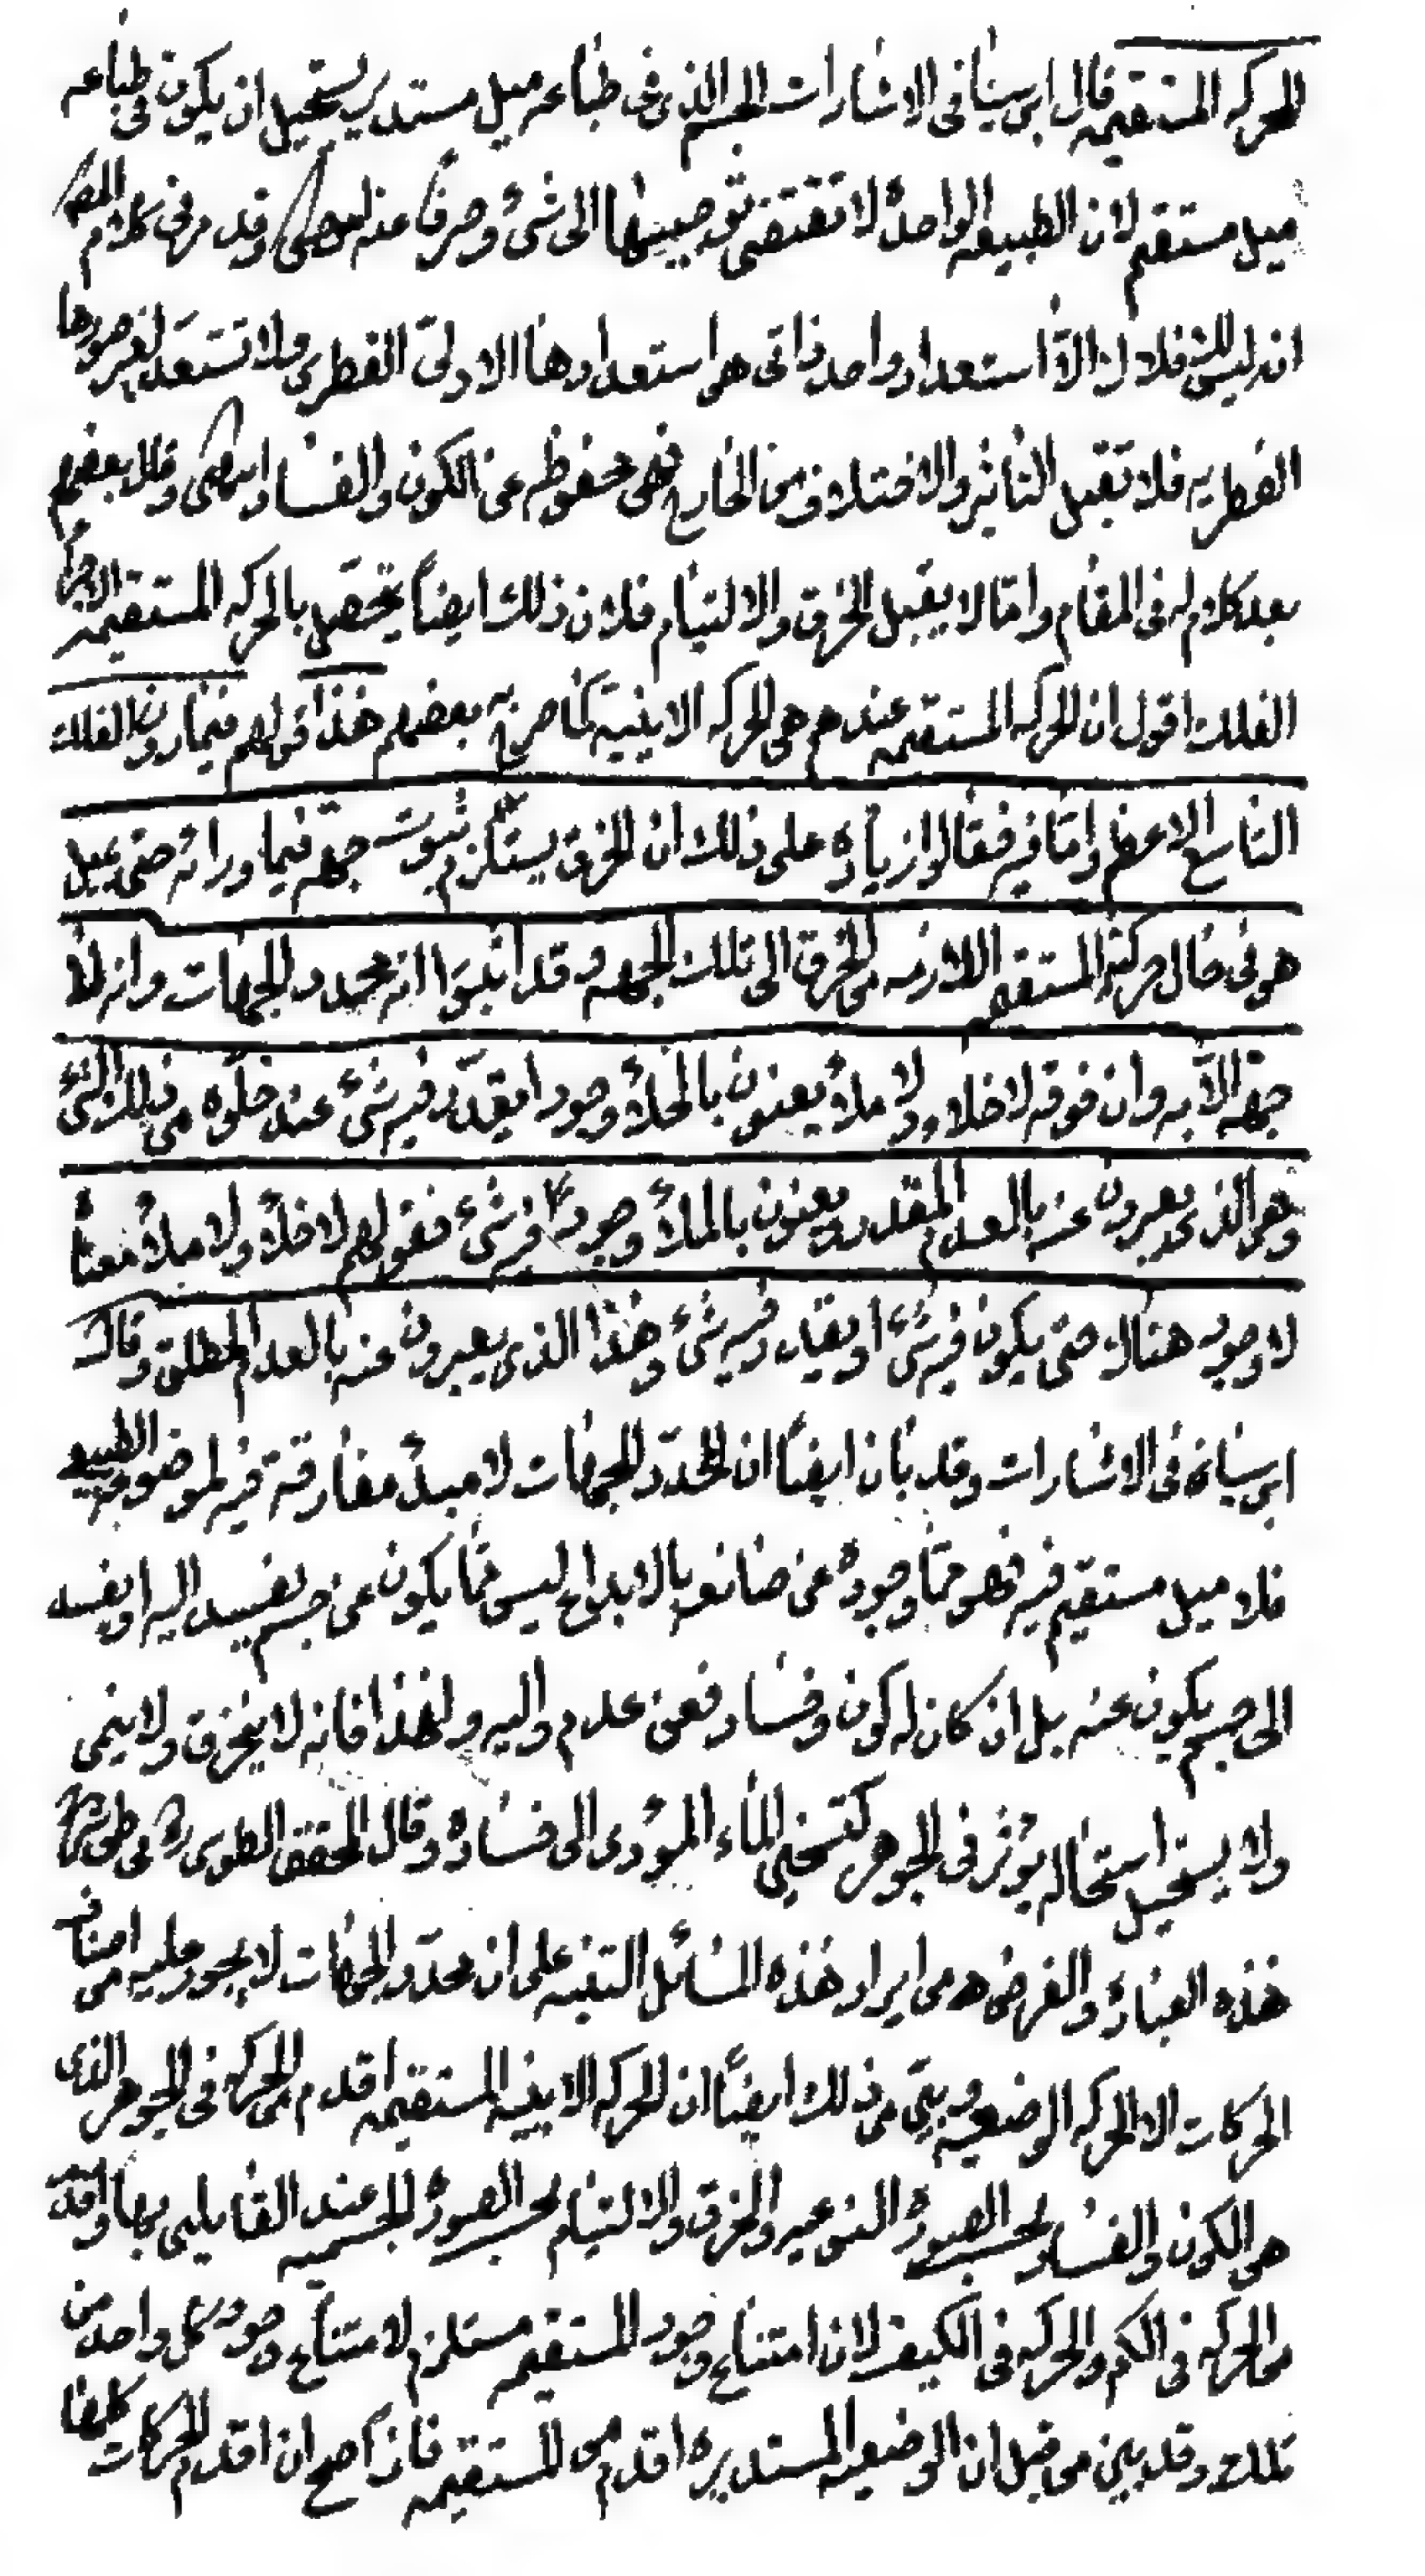 الحركه المستقيمه قال ابن سينا فى الاشارات الجسم الذى فى طباعه ميل مستدير يستحيل ان يكون فى طباعه
ميل مستقيم لان الطبيعه الواحدة لا تقتضى توجيها الى شئ وصرفاً عنه انتهى وقد مر فى كلام المص
انه ليس للافلاك الا استعداد واحد ذاتى هى استعدادها الاولىّ الفطرى ولا تستعد لغير صورها
الفطريه فلا تقبل التأثير والاختلاف من الخارج فهى محفوظه عن الكون والفساد انتهى وقال بعضهم
بعد كلام له فى المقام وامّا لا يقبل الخرق والالتيام فلان ذلك ايضاً يحصل بالحركه المستقيمه لاجزاء
الفلك اقول ان الحركه المستقيمه عندهم هى الحركه الاينيّة كما صرح به بعضهم هذا قولهم فيما دون الفلك
التاسع الاعظم وامّا فيه فقالوا زياده على ذلك ان الخرق يستلزم ثبوت جهه فيما ورائه حتى يميل
هو فى حال حركته المستقيمه اللازمه من الخرق الى تلك الجهه وقد اثبتوا انه محدد الجهات وانه لا
جهه الاّ به وان فوقه لا خلاء ولا ملأ يعنون بالخلأ وجودا يقدّر فيه شئ عند خلوّه من ذلك الشئ
وهو الذى يعبرون عنه بالعدم المقدر ويعنون بالملأ وجوداً فيه شئ فقولهم لا خلأ ولا ملأ معناه
لا وجود هناك حتى يكون فيه شئ او يقدر فيه شئ وهذا الذى يعبرون عنه بالعدم المطلق وقال
ابن سينا فى الاشارات وقد بان ايضاً ان المحدّد للجهات لا مبدأ مفارقة فيه لموضعه الطبيعى
فلا ميل مستقيم فيه فهو ممّا وجوده عن صانعه بالابداع ليس ممّا يكون عن جسم يفسد اليه او يفسد
الى جسم يكون عنه بل ان كان له كون وفساد فعن عدم واليه ولهذا فانه لا ينخرق ولا ينمى
ولا يستحيل استحاله يؤثر فى الجوهر كتسخين الماء المؤدى الى فساده وقال المحقق الطوسى ره فى طى شرح
هذه العباره والغرض من ايراد هذه المسائل التنبيه على ان محدّد الجهات لا يجوز عليه من اصناف
الحركات الا الحركه الوضعيه وبيّن من ذلك ايضاً ان الحركه الاينيه المستقيمه اقدم من الحركه فى الجوهر الذى
هى الكون والفساد بحسب الصورة النوعيه والخرق والالتيام بحسب الصورة الجسميه عند القايلين بها واقدم
من الحركه فى الكم والحركه فى الكيف لان امتناع وجود المستقيمه مستلزم لامتناع وجود كل واحد من
تلك وقد بين من قبل ان الوضعيه المستديره اقدم من المستقيمه فاذاً صح ان اقدم الحركات كلها